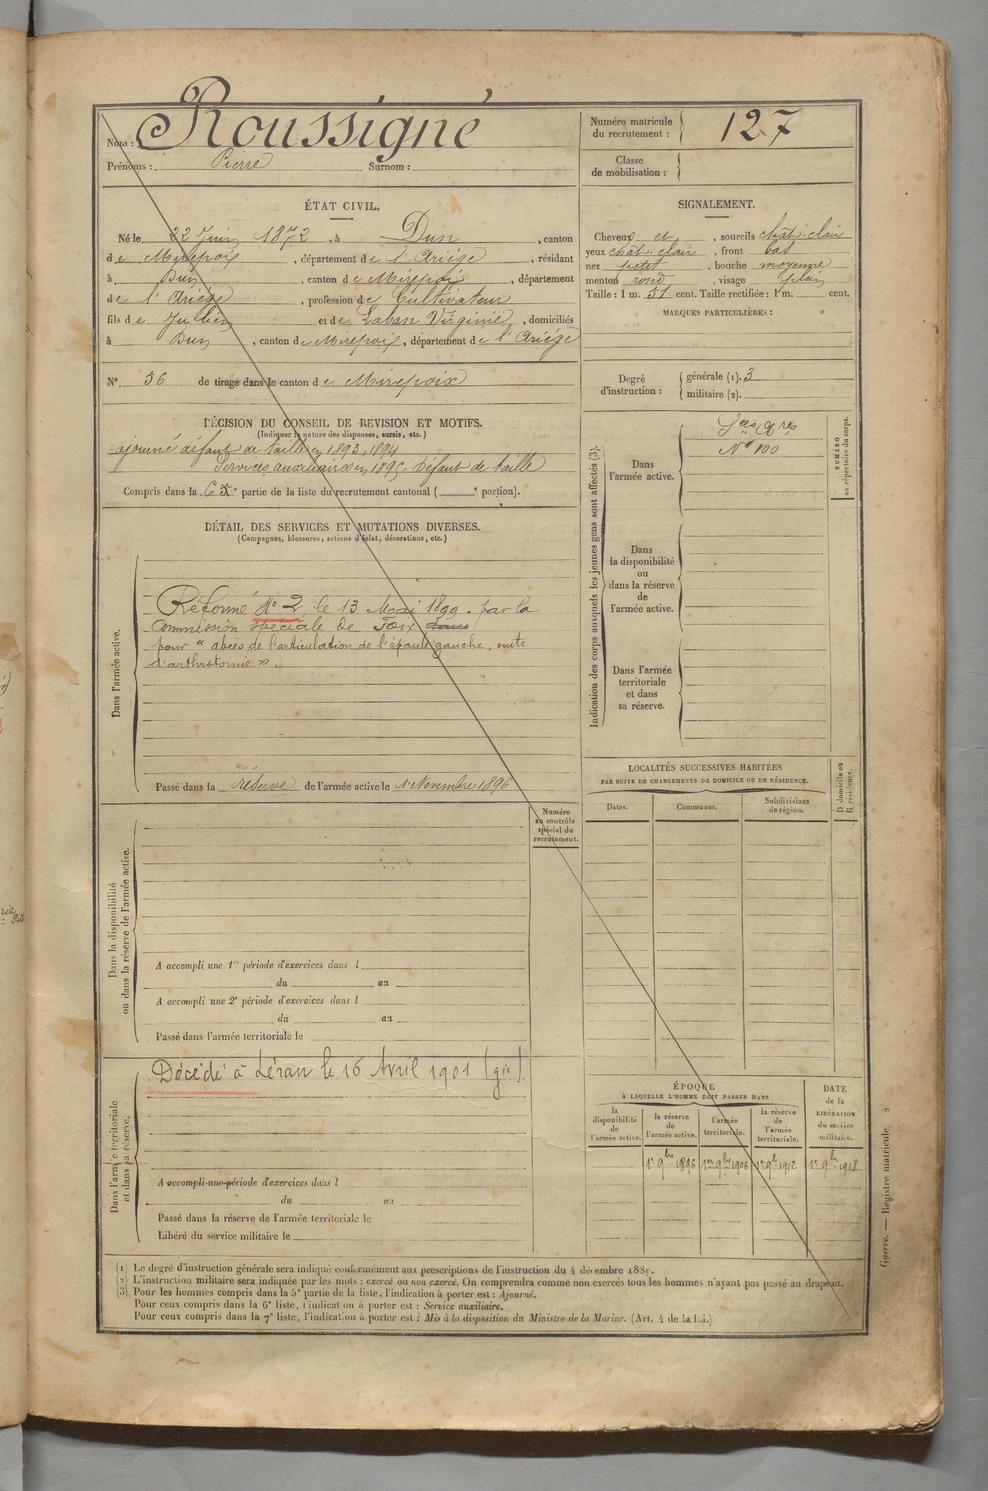 Nom : Roussigné
Prénoms : Pierre Surnom :
Numéro matricule du recrutement : 127
Classe de mobilisation :
ÉTAT CIVIL.
Né le 22 Juin 1872, à Dun, canton
de Mirepoix, département de l'Ariège, résidant
à Dun, canton de Mirepoix, département
de l'Ariège, profession de Cultivateur
fils de Julien et de Laban Virginie, domiciliés
à Dun, canton de Mirepoix, département de l'Ariège
N° 56 de tirage dans le canton de Mirepoix
SIGNALEMENT.
Cheveux et, sourcils chât-clair
yeux chât-clair, front bas
nez petit, bouche moyenne
menton rond, visage plein
Taille : 1 m. 51 cent. Taille rectifiée : 1 m. cent.
MARQUES PARTICULIÈRES :
Degré d'instruction :
générale (1). 3
militaire (2).
DÉCISION DU CONSEIL DE REVISION ET MOTIFS.
(Indiquer la nature des dispenses, sursis, etc.)
ajourné défaut de taille en 1893, 1894
Services auxiliaires en 1895, défaut de taille
Compris dans la 6e partie de la liste du recrutement cantonal ( e portion).
DÉTAIL DES SERVICES ET MUTATIONS DIVERSES.
(Campagnes, blessures, actions d'éclat, décorations, etc.)
Dans l'armée active.
Réformé N° 2, le 13 Mai 1899. par la
commission spéciale de Foix dans
pour "abcès de l'articulation de l'épaule gauche, suite
d'arthrotomie".
Passé dans la réserve de l'armée active le 1er Novembre 1896
Numéro au contrôle spécial du recrutement.
Indication des corps auxquels les jeunes gens sont affectés (3).
Dans l'armée active.
Sces Qres
N° 100
Dans la disponibilité ou dans la réserve de l'armée active.
Dans l'armée territoriale et dans sa réserve.
NUMÉRO au répertoire du corps.
LOCALITÉS SUCCESSIVES HABITÉES
PAR SUITE DE CHANGEMENTS DE DOMICILE OU DE RÉSIDENCE.
Dates. Communes. Subdivisions de région.
D domicile ou R résidence.
Dans la disponibilité ou dans la réserve de l'armée active.
A accompli une 1re période d'exercices dans l
du au
A accompli une 2e période d'exercices dans l
du au
Passé dans l'armée territoriale le
Dans l'armée territoriale et dans sa réserve.
Décédé à Léran le 16 Avril 1901 (gie)
A accompli une période d'exercices dans l
du au
Passé dans la réserve de l'armée territoriale le
Libéré du service militaire le
ÉPOQUE
À LAQUELLE L'HOMME DOIT PASSER DANS
la disponibilité de l'armée active.
la réserve de l'armée active.
l'armée territoriale.
la réserve de l'armée territoriale.
DATE de la LIBÉRATION du service militaire.
1er 9bre 1896 1er 9bre 1906 1er 9bre 1912 1er 9bre 1918
(1) Le degré d'instruction générale sera indiqué conformément aux prescriptions de l'instruction du 4 décembre 1889.
(2) L'instruction militaire sera indiquée par les mots : exercé ou non exercé. On comprendra comme non exercés tous les hommes n'ayant pas passé au drapeau.
(3) Pour les hommes compris dans la 5e partie de la liste, l'indication à porter est : Ajourné.
Pour ceux compris dans la 6e liste, l'indication à porter est : Service auxiliaire.
Pour ceux compris dans la 7e liste, l'indication à porter est : Mis à la disposition du Ministre de la Marine. (Art. 4 de la loi.)
Guerre. — Registre matricule.